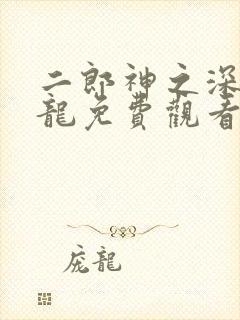 二郎神之深
龍免費觀看
庞龍